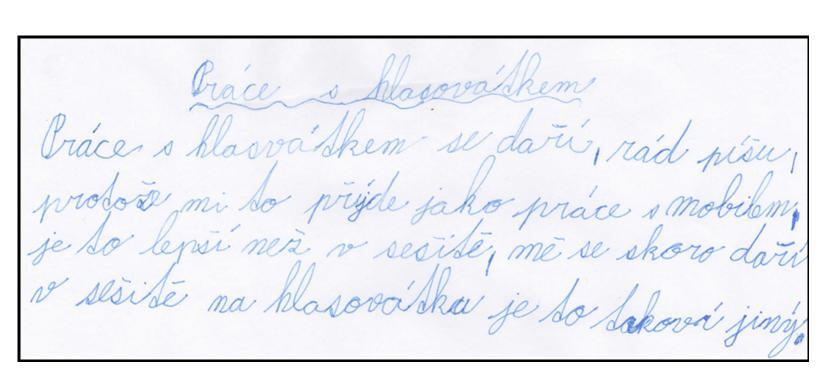 Práce s hlasovátkem
Práce s hlasvátkem se daří, rád píšu,
protože mi to přýde jako práce s mobilem,
je to lepší než v sešitě, mě se skoro daří
v sešitě na hlasovátku je to taková jiný.